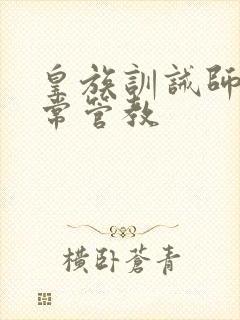 皇族訓誡師
常管教
橫臥蒼青